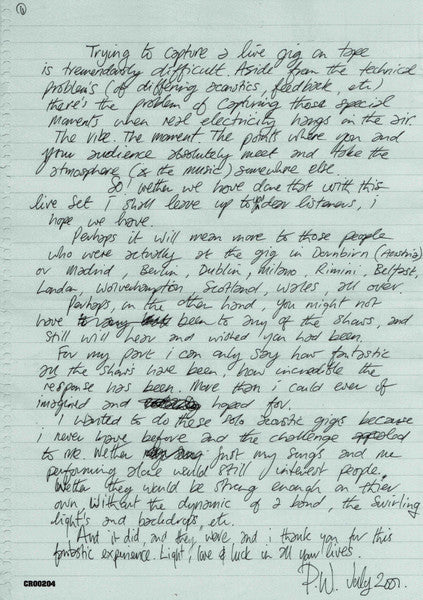 ①
Trying to capture a live gig on tape
is tremendously difficult. Aside from the technical
problems (of differing acoustics, feedback, etc)
there's the problem of capturing those special
moments when real electricity hangs in the air
The vibe. The moment. The points where you and
your audience absolutely meet and take the
atmosphere (& the music) somewhere else.
So wether we have done that with this
live set I shall leave up to dear listeners, i
hope we have.
Perhaps it will mean more to those people
who were actually at the gig in Dornbirn (Austria)
or Madrid, Berlin, Dublin, Milano, Rimini, Belfast,
London, Wolverhampton, Scotland, Wales, all over.
Perhaps, on the other hand, you might not
have been to any of the shows, and
still will hear and wished you had been.
For my part i can only say how fantastic
all the shows have been, how incredible the
response has been. More than i could ever of
imagined and hoped for.
I wanted to do these solo acoustic gigs because
i never have before and the challenge appealed
to me. Wether just my songs and me
performing alone would still interest people.
Wether they would be strong enough on thier
own, without the dynamic of a band, the swirling
light's and backdrops, etc.
And it did, and they were and i thank you for this
fantastic experience. Light, love & luck in all your lives.
P.W. July 2001.
CR00204